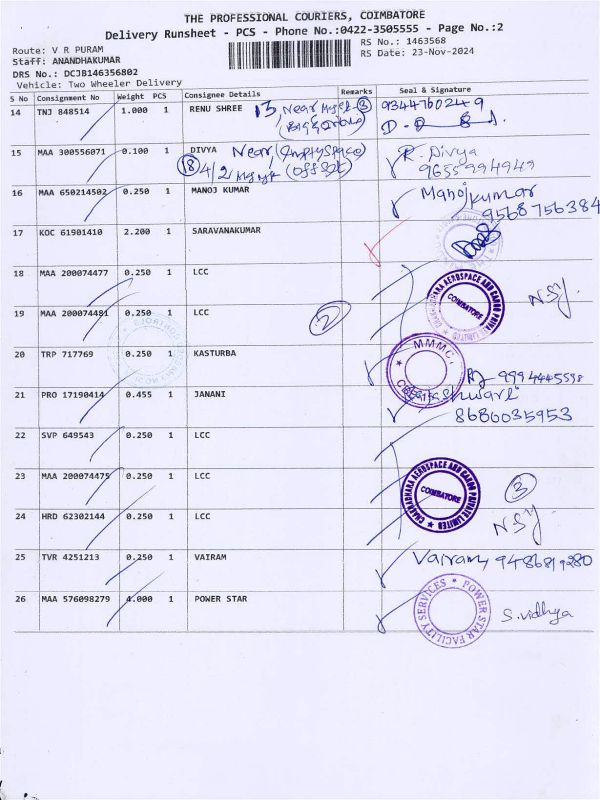 THE PROFESSIONAL COURIERS, COIMBATORE
Delivery Runsheet - PCS - Phone No.:0422-3505555 - Page No.:2
Route: V R PURAM
RS No.: 1463568
Staff: ANANDHAKUMAR
RS Date: 23-Nov-2024
DRS No.: DCJB146356802
Vehicle: Two Wheeler Delivery
S No Consignment No Weight PCS Consignee Details Remarks Seal & Signature
14 TNJ 848514 1.000 1 RENU SHREE 13, Near 9344760249
15 MAA 300556071 0.100 1 DIVYA Near (Empty Space) R. Divya
18 4/2 9655994949
16 MAA 650214502 0.250 1 MANOJ KUMAR Manojkumar
9568756384
17 KOC 61901410 2.200 1 SARAVANAKUMAR
18 MAA 200074477 0.250 1 LCC
CHAKRADHARA AEROSPACE AND CARGO PRIVATE LIMITED
COIMBATORE
NSY.
19 MAA 200074481 0.250 1 LCC
2
20 TRP 717769 0.250 1 KASTURBA
M.M.M.C.
9994445598
21 PRO 17190414 0.455 1 JANANI
8680035953
22 SVP 649543 0.250 1 LCC
23 MAA 200074475 0.250 1 LCC
CHAKRADHARA AEROSPACE AND CARGO PRIVATE LIMITED
COIMBATORE
3
24 HRD 62302144 0.250 1 LCC NSY.
25 TVR 4251213 0.250 1 VAIRAM Vairam, 9486819280
26 MAA 576098279 4.000 1 POWER STAR
POWER STAR FACILITY SERVICES
S. vidhya